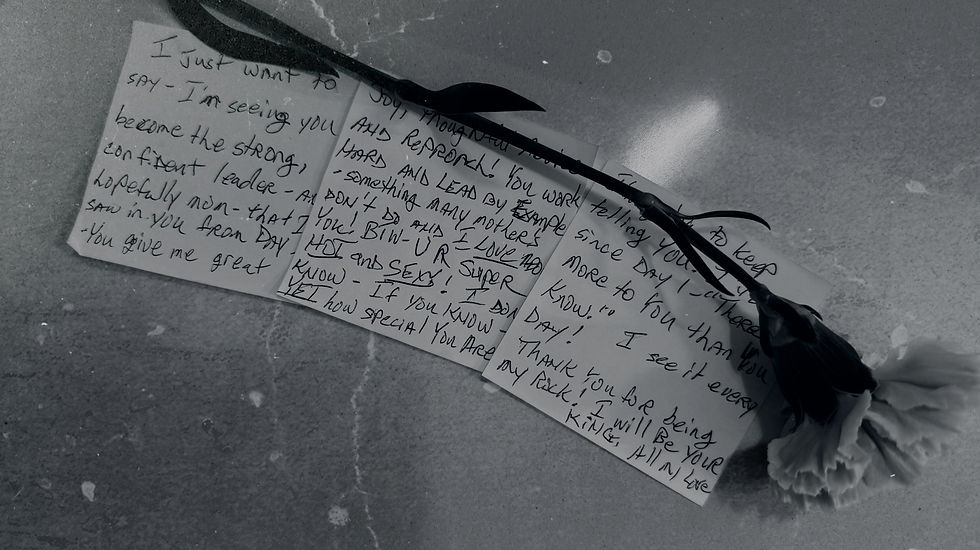 I just want to
say - I'm seeing you
become the strong,
confident leader - AN
hopefully mom - that I
saw in you from Day
- You give me great
Joy, thoughtful
AND Reproach! You work
HARD AND LEAD By Example
- something many mothers
DON'T DO AND I LOVE
You! BTW - U R Super
HOT and SEXY! I DON
KNOW - If you KNOW -
YET how special You ARE
to keep
telling You
since DAY 1 - there
more to You than You
KNOW... I see it every
DAY!
THANK You for being
my Rock! I will Be Your
KING, All my Love